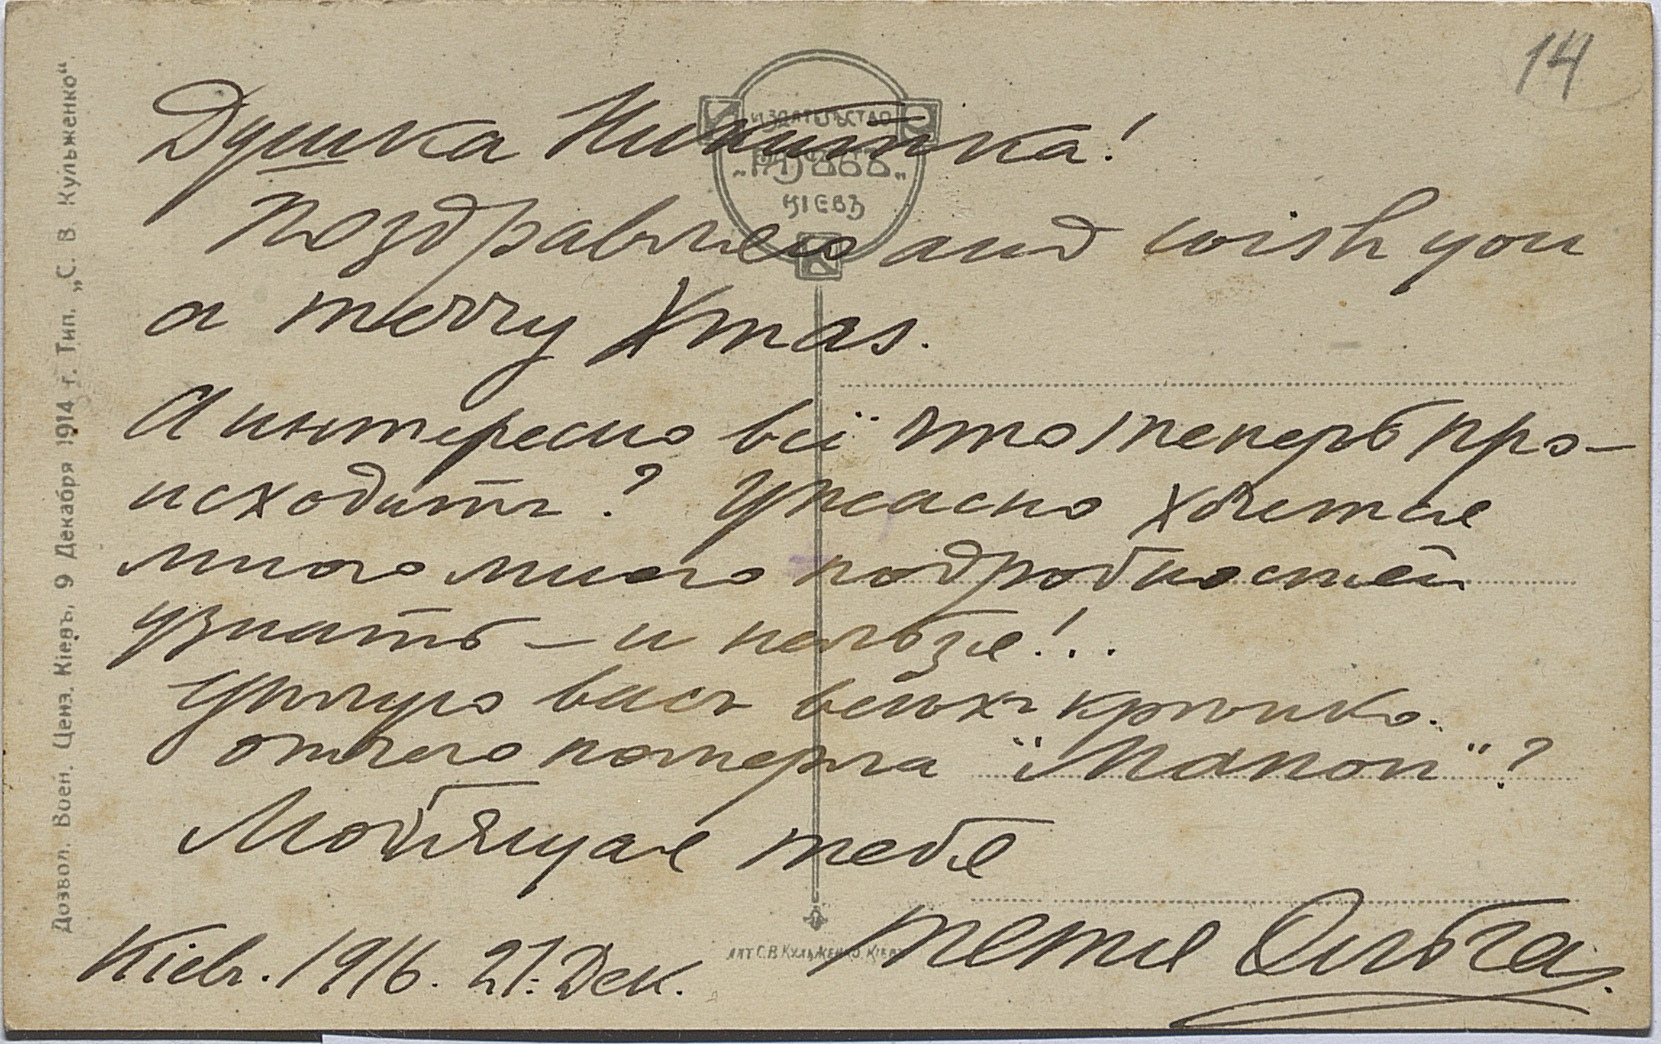 14
Душка Никитка!
Поздравляю and wish you
a merry Xmas.
А интересно всё что теперь про-
исходитъ? Ужасно хочется
много много подробностей
узнать — и нельзя!..
Цѣлую васъ всѣхъ крѣпко.
отчего потеряла "Мапоп"?
Любящая тебя
тетя Ольга.
Кіевъ. 1916. 21. Дек.
ИЗДАТЕЛЬСТВО
КІЕВЪ
Дозвол. Воен. Ценз. Кіевъ, 9 Декабря 1914 г. Тип. „С. В. Кульженко“.
ЛИТ. С. В. КУЛЬЖЕНКО, КІЕВЪ